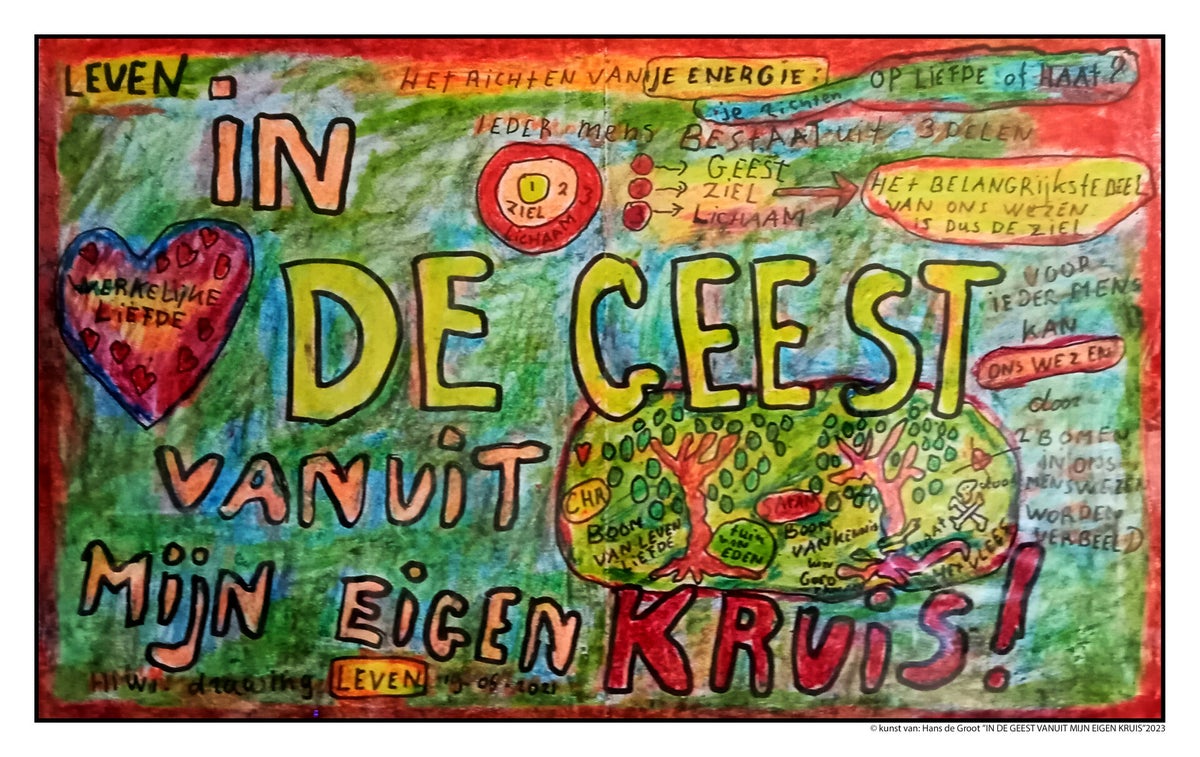 LEVEN
HET RICHTEN VAN JE ENERGIE:
OP LIEFDE of HAAT?
je richten
IEDER mens BESTAAT uit 3 DELEN
iN
1
2
3
ZIEL
LICHAAM
1 GEEST
2 ZIEL
3 LICHAAM
HET BELANGRIJKSTE DEEL
VAN ONS WEZEN
IS DUS DE ZIEL
WERKELIJKE
LIEFDE
DE GEEST
VOOR
IEDER MENS
KAN
ONS WEZEN
door
2 BOMEN
IN ONS
MENSWEZEN
WORDEN
VERBEELD
VANUIT
CHR
BOOM
VAN LEVEN
LIEFDE
tuin
van
EDEN
SATAN
BOOM
VAN kennis
van
Goed
HAAT
HET VLEES
MIJN EIGEN
KRUIS!
drawing LEVEN 19-06-2021
© kunst van: Hans de Groot "IN DE GEEST VANUIT MIJN EIGEN KRUIS"2023